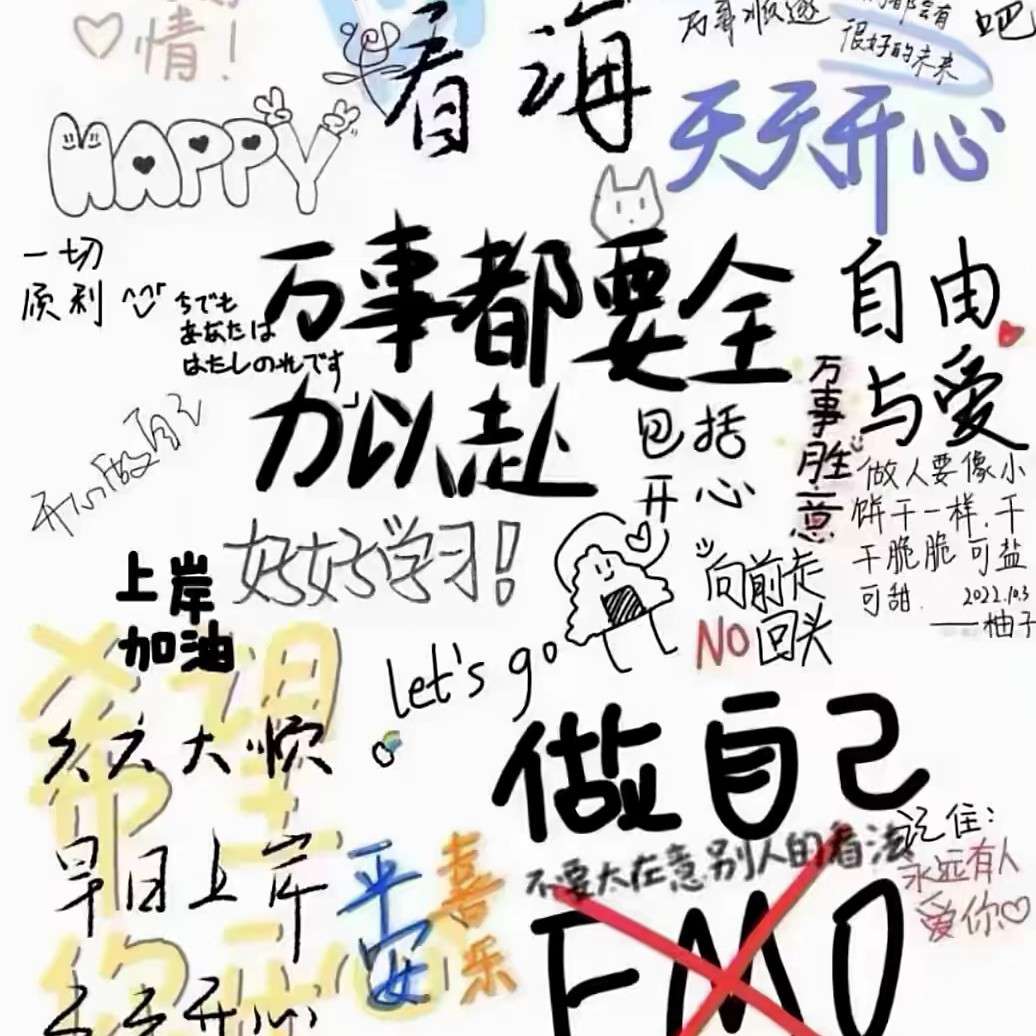 情！
看海
万事顺遂
都会有
很好的未来
吧
HAPPY
天天开心
一切
顺利
ちでも
あなたは
はたしのれです
万事都要全
力以赴
包括
开心
自由
与爱
万事胜意
开心做自己
做人要像小
饼干一样.干
干脆脆可盐
可甜.
2022.10.3
——柚子
好好学习！
上岸
加油
向前走
NO回头
let's go
希望
久久大顺
做自己
不要太在意别人的看法
早日上岸
平安
喜乐
记住：
永远有人
爱你♡
EMO
天天开心